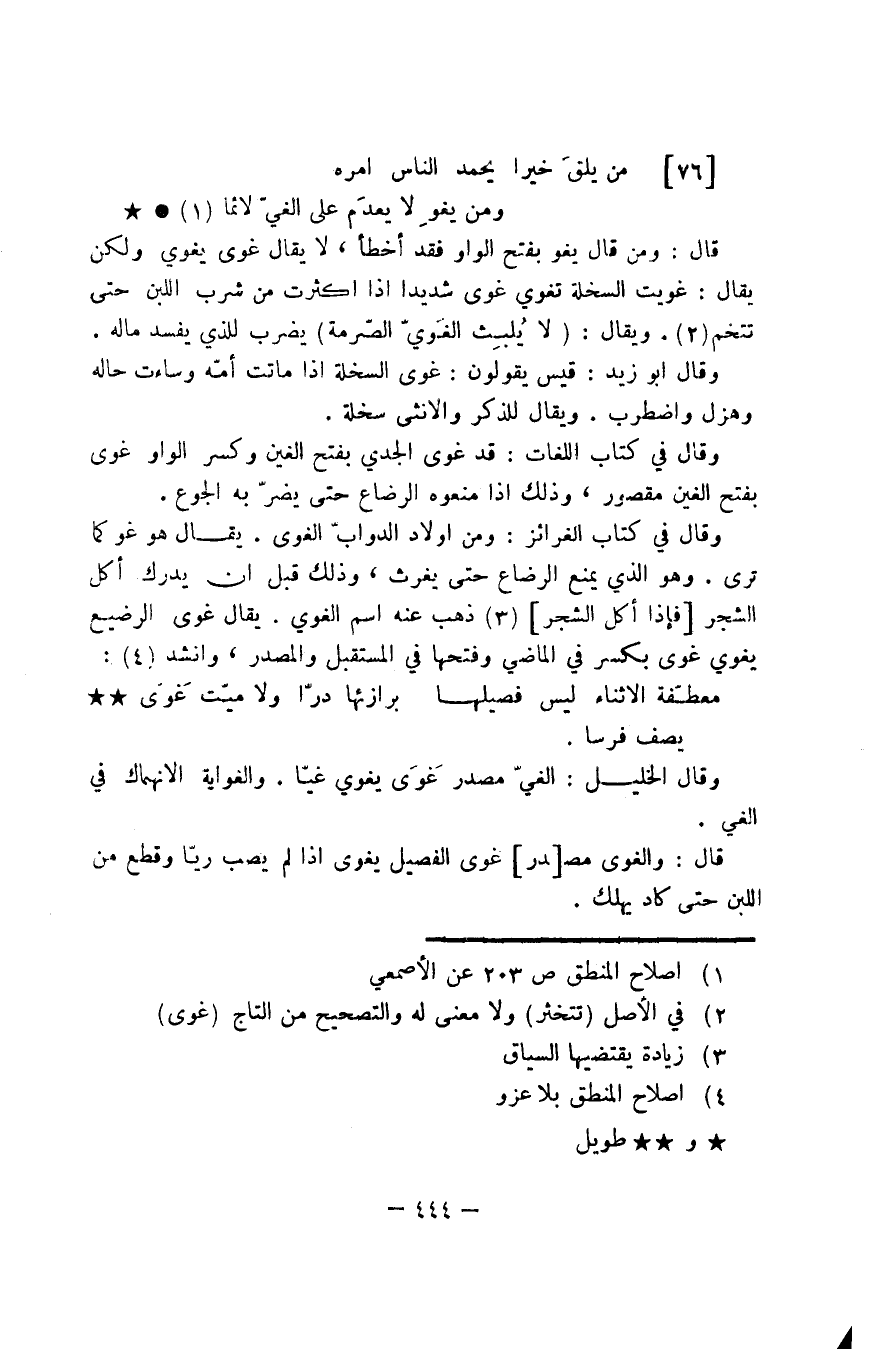 [٧٦] من يلقَ خيرا يحمد الناس امره
ومن يغوِ لا يعدَم على الغيّ لائما (١) ● ★
قال : ومن قال يغو بفتح الواو فقد أخطأ ، لا يقال غوى يغوي ولكن
يقال : غويت السخلة تغوي غوى شديدا اذا اكثرت من شرب اللبن حتى
تتخم(٢) . ويقال : ( لا يُلبِث الغَويّ الصّرمة) يضرب للذي يفسد ماله .
وقال ابو زيد : قيس يقولون : غوى السخلة اذا ماتت أمّه وساءت حاله
وهزل واضطرب . ويقال للذكر والانثى سخلة .
وقال في كتاب اللغات : قد غوى الجدي بفتح الغين وكسر الواو غوى
بفتح الغين مقصور ، وذلك اذا منعوه الرضاع حتى يضرّ به الجوع .
وقال في كتاب الغرائز : ومن اولاد الدوابّ الغوى . يقـــال هو غو كما
ترى . وهو الذي يمنع الرضاع حتى يغرث ، وذلك قبل ان يدرك أكل
الشجر [فإذا أكل الشجر] (٣) ذهب عنه اسم الغوي . يقال غوى الرضيع
يغوي غوى بكسر في الماضي وفتحها في المستقبل والمصدر ، وانشد (٤) :
معطـّفة الاثناء ليس فصيلهـــا برازئها درّا ولا ميّت غَوَى ★★
يصف فرسا .
وقال الخليـــل : الغيّ مصدر غَوَى يغوي غيّا . والغواية الانهماك في
الغي .
قال : والغوى مصـ[ـدر] غوى الفصيل يغوى اذا لم يصب ريّا وقطع من
اللبن حتى كاد يهلك .
١) اصلاح المنطق ص ٢٠٣ عن الأصمعي
٢) في الأصل (تتخثر) ولا معنى له والتصحيح من التاج (غوى)
٣) زيادة يقتضيها السياق
٤) اصلاح المنطق بلا عزو
★ و ★★ طويل
— ٤٤٤ —